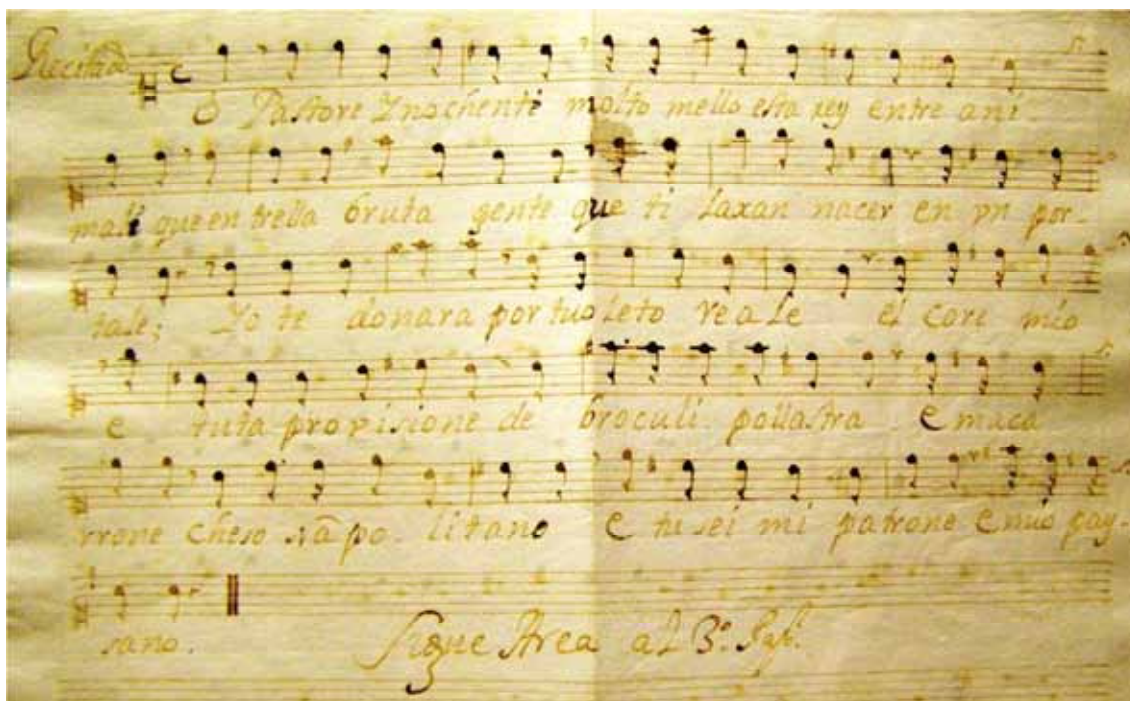 Recitado
O Pastore Ynochenti molto mello esta rey entre ani-
mali que en trella bruta gente que ti laxan nacer en vn por-
tale; Yo te donara por tuo leto reale el cori mio
e tuta provisione de broculi pollastra e maca
rrone cheso nāpo-litano e tu sei mi patrone e mio pay-
sano.
Sigue Area al 3º.